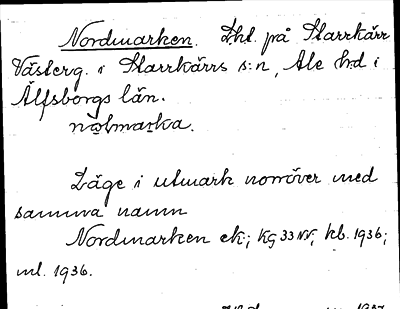 Nordmarken. Lht. på Starrkärr
Västerg. i Starrkärrs s:n, Ale hd i
Älfsborgs län.
nolmarka.
Läge i utmark norröver med
samma namn
Nordmarken ek; KG 33 NV; kb. 1936;
ml. 1936.